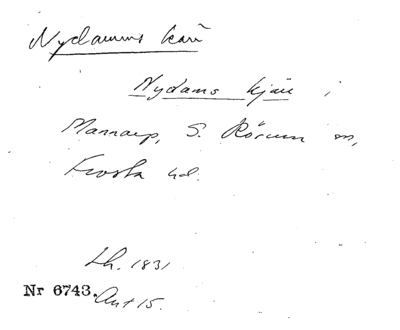 Nydamms kärr
Nydams kjär i
Mannarp, S. Rörum sn,
Frosta hd.
Lh. 1831
Nr 6743. Ant 15.